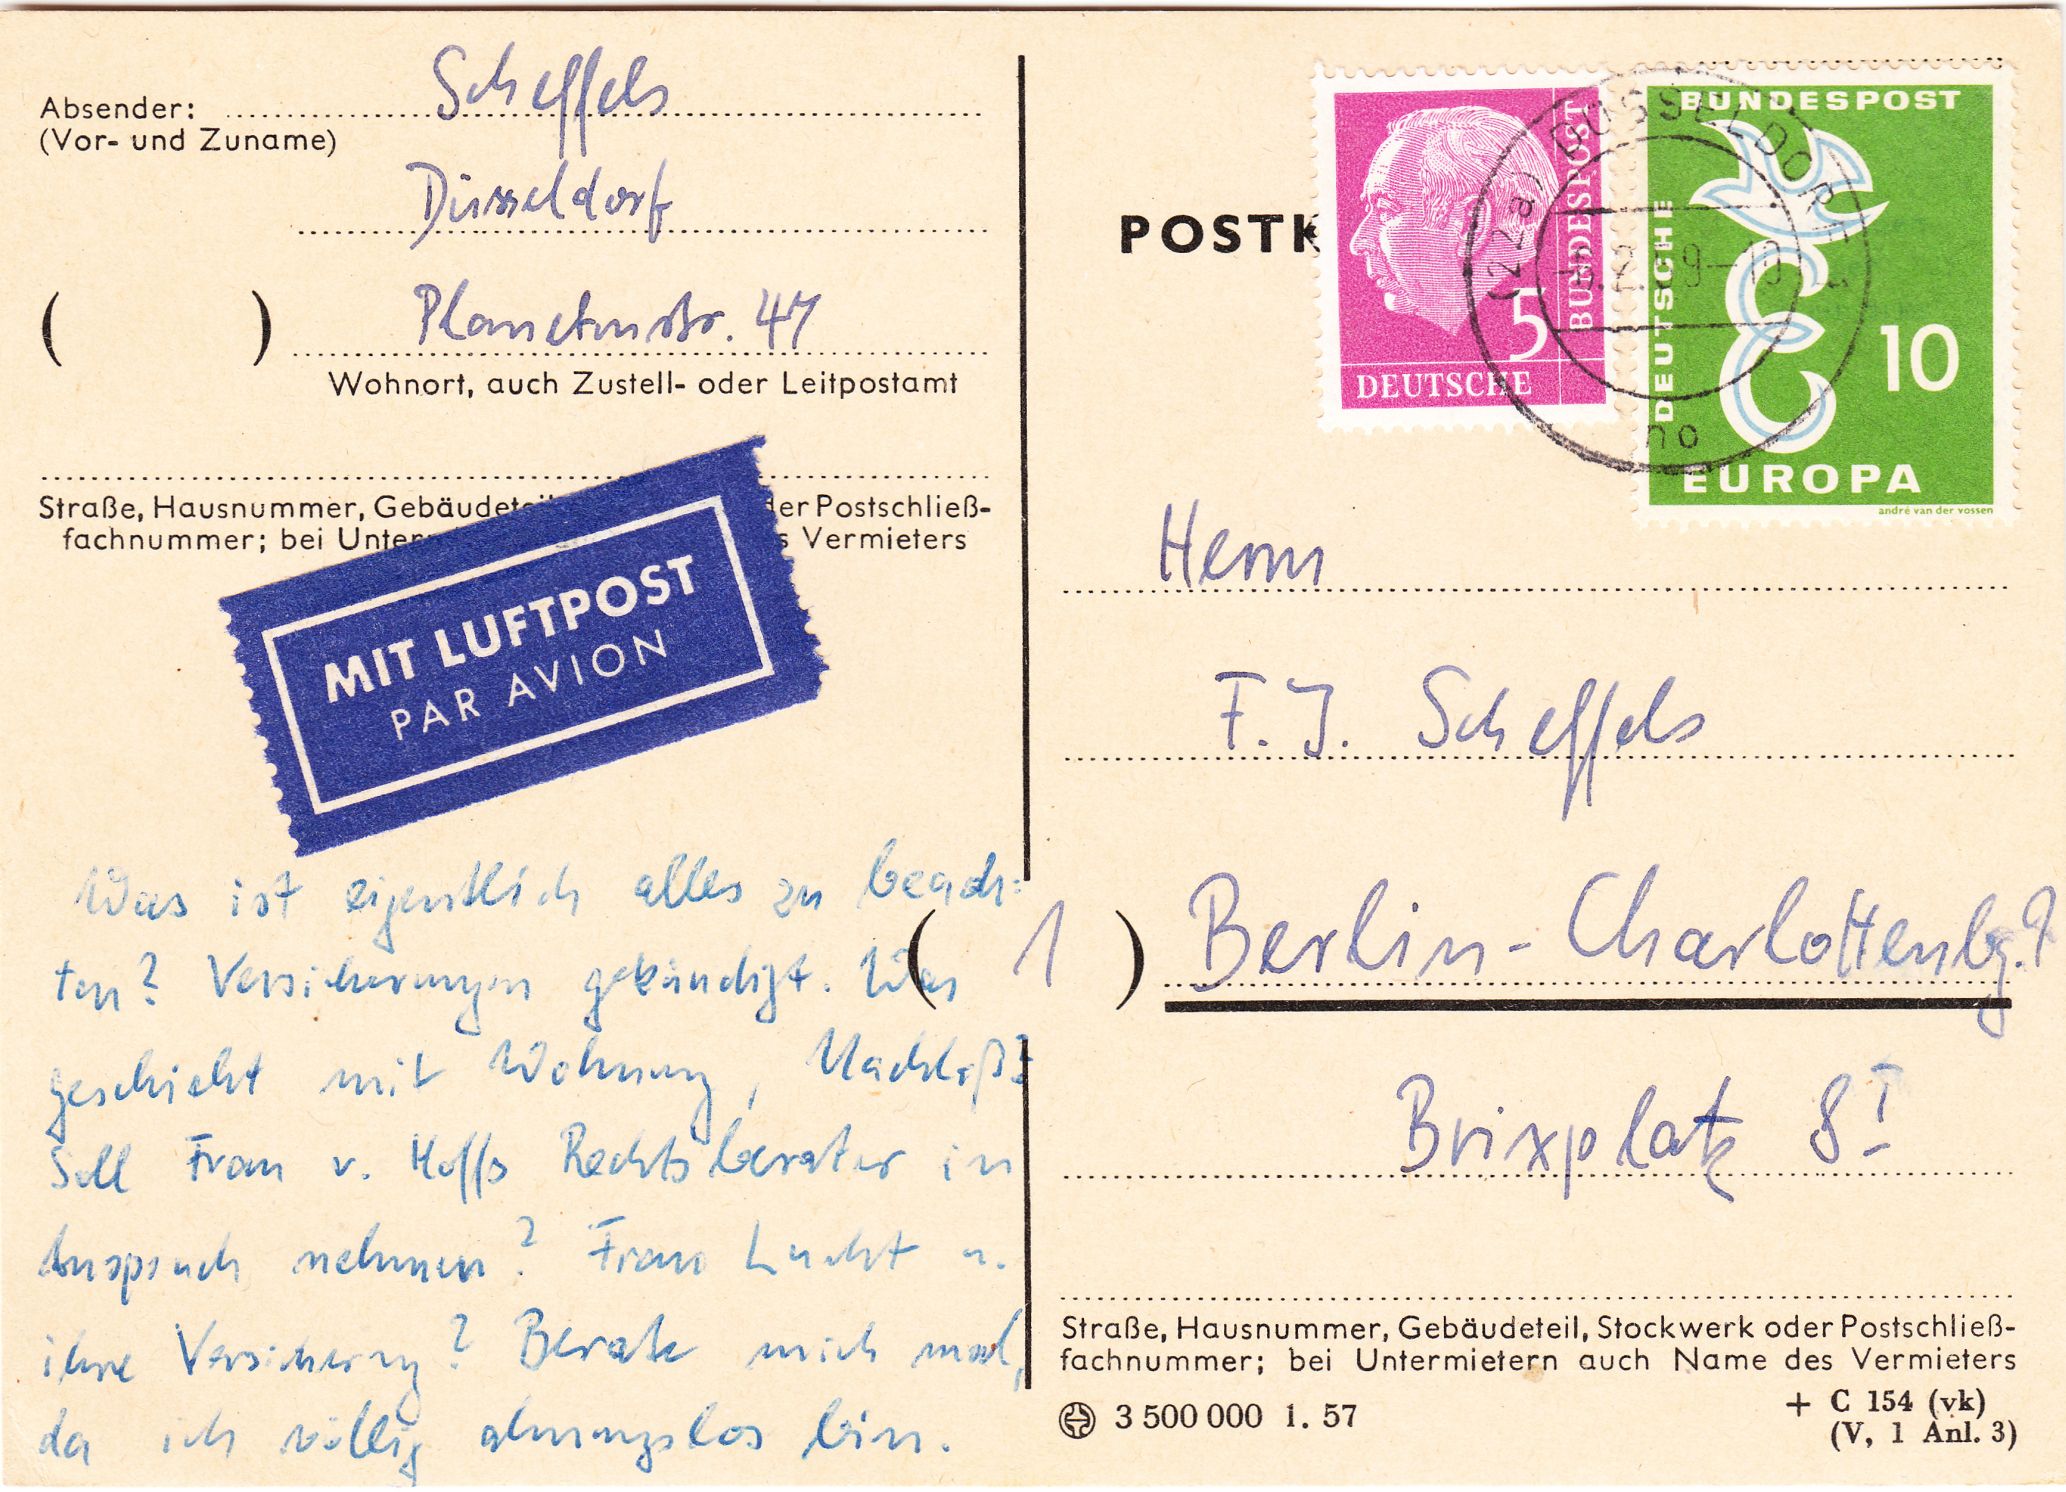 Absender: Scheffels
(Vor- und Zuname)
Düsseldorf
( ) Planetenstr. 47
Wohnort, auch Zustell- oder Leitpostamt
Straße, Hausnummer, Gebäudete der Postschließ-
fachnummer; bei Unter s Vermieters
MIT LUFTPOST
PAR AVION
Was ist eigentlich alles zu beach-
ten? Versicherungen gekündigt. Was
geschieht mit Wohnung, Nachlaß?
Soll Frau v. Hoffs Rechtsberater in
Anspruch nehmen? Frau Lucht u.
ihre Versicherung? Berate mich mal,
da ich völlig ahnungslos bin.
POSTK
5
DEUTSCHE
BUNDESPOST
BUNDESPOST
DEUTSCHE
10
EUROPA
andré van der vossen
(22a) DÜSSELDORF
no
Herrn
F. J. Scheffels
( 1 ) Berlin-Charlottenbg. 9
Brixplatz 8 I
Straße, Hausnummer, Gebäudeteil, Stockwerk oder Postschließ-
fachnummer; bei Untermietern auch Name des Vermieters
3 500 000 1. 57
+ C 154 (vk)
(V, 1 Anl. 3)